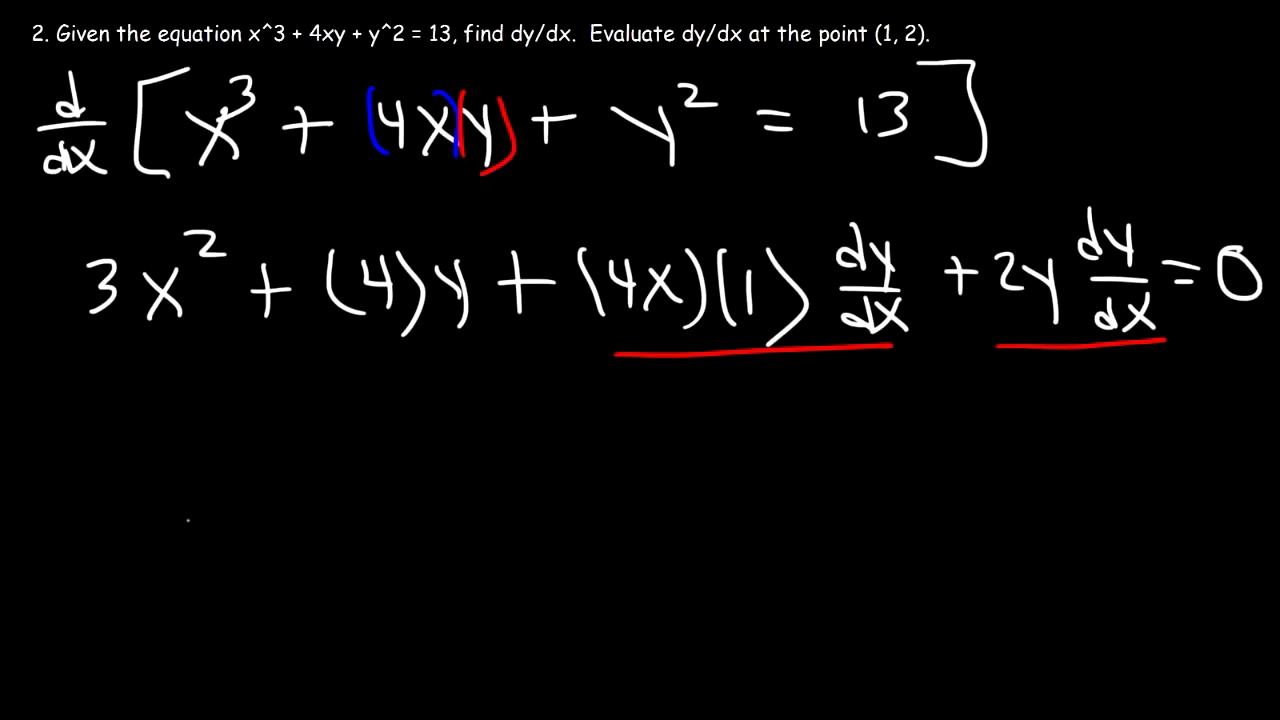 2. Given the equation x^3 + 4xy + y^2 = 13, find dy/dx.  Evaluate dy/dx at the point (1, 2).
d/dx [x³ + (4x)(y) + y² = 13]
3x² + (4)y + (4x)(1) dy/dx + 2y dy/dx = 0